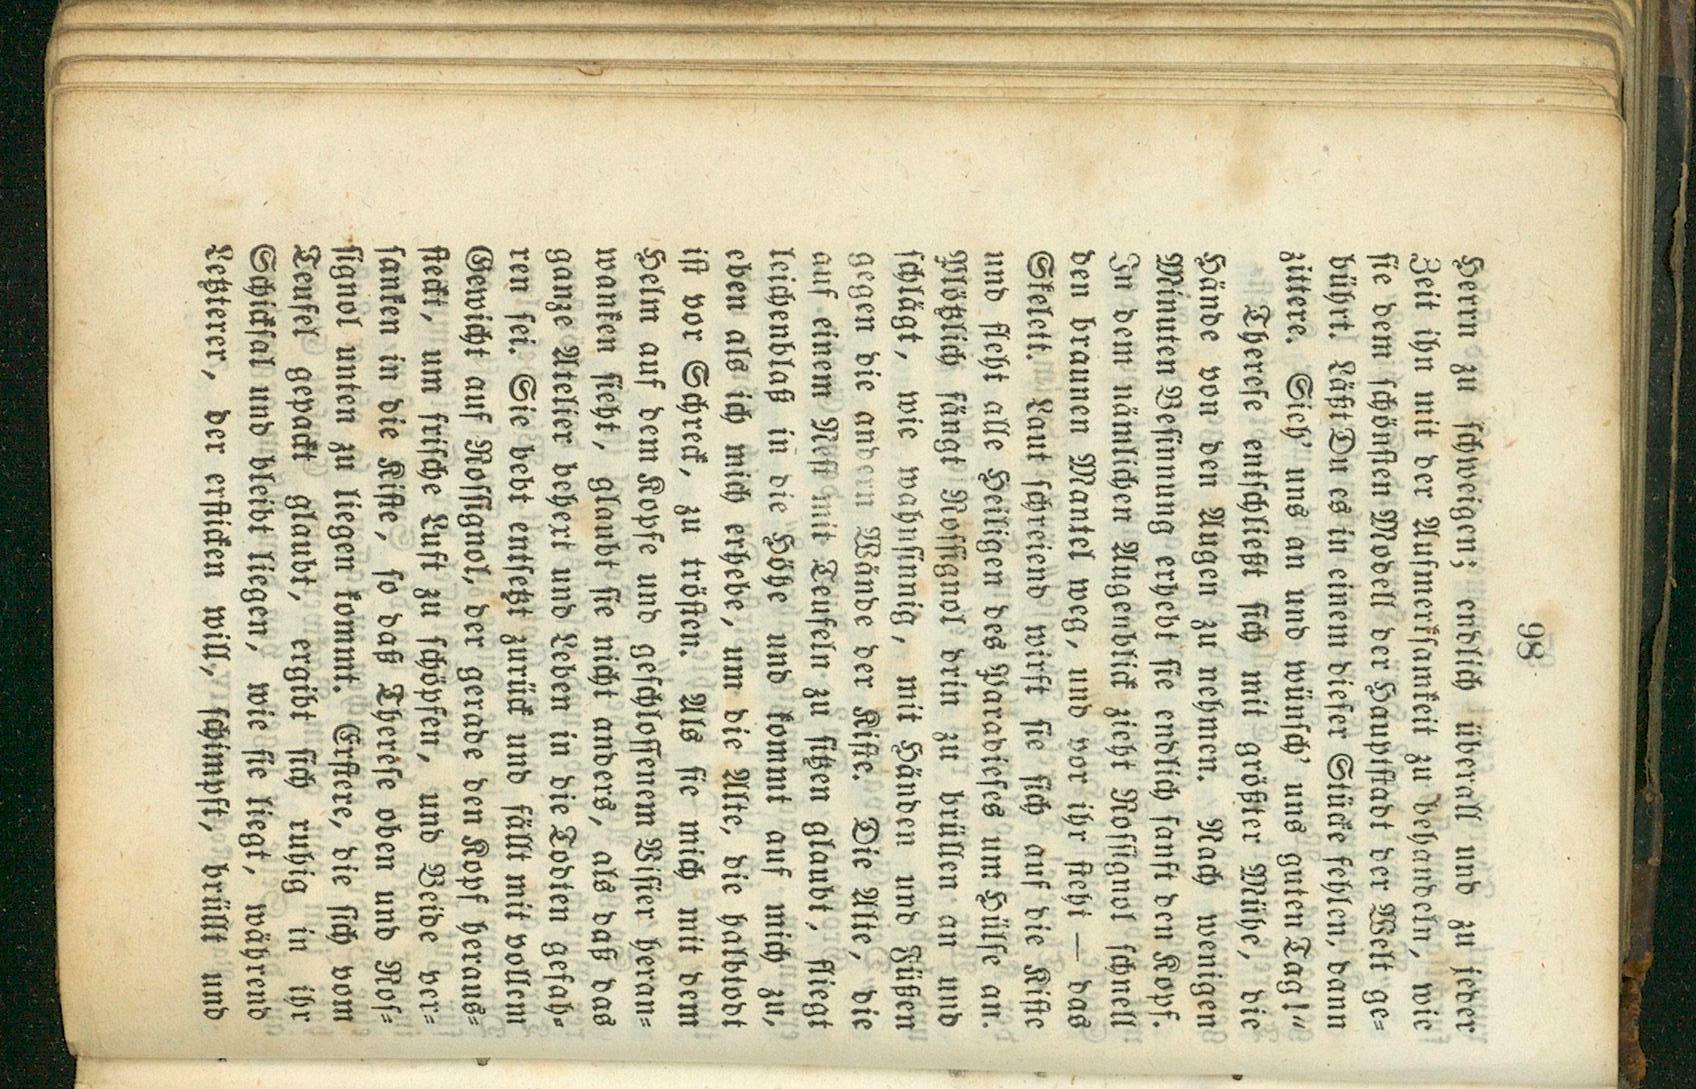 98
Herrn zu schweigen; endlich überall und zu jeder
Zeit ihn mit der Aufmerksamkeit zu behandeln, wie
sie dem schönsten Modell der Hauptstadt der Welt ge=
bührt. Läßt Du es in einem dieser Stücke fehlen, dann
zittere. Sieh' uns an und wünsch' uns guten Tag!"
Therese entschließt sich mit größter Mühe, die
Hände von den Augen zu nehmen. Nach wenigen
Minuten Besinnung erhebt sie endlich sanft den Kopf.
In dem nämlichen Augenblick zieht Rossignol schnell
den braunen Mantel weg, und vor ihr steht — das
Skelett. Laut schreiend wirft sie sich auf die Kiste
und fleht alle Heiligen des Paradieses um Hülfe an.
Plötzlich fängt Rossignol drin zu brüllen an und
schlägt, wie wahnsinnig, mit Händen und Füßen
gegen die andern Wände der Kiste. Die Alte, die
auf einem Nest mit Teufeln zu sitzen glaubt, fliegt
leichenblaß in die Höhe und kommt auf mich zu,
eben als ich mich erhebe, um die Alte, die halbtodt
ist vor Schreck, zu trösten. Als sie mich mit dem
Helm auf dem Kopfe und geschlossenem Visier heran=
wanken sieht, glaubt sie nicht anders, als daß das
ganze Atelier behext und Leben in die Todten gefah=
ren sei. Sie bebt entsetzt zurück und fällt mit vollem
Gewicht auf Rossignol, der gerade den Kopf heraus=
steckt, um frische Luft zu schöpfen, und Beide ver=
sanken in die Kiste, so daß Therese oben und Ros=
signol unten zu liegen kommt. Erstere, die sich vom
Teufel gepackt glaubt, ergibt sich ruhig in ihr
Schicksal und bleibt liegen, wie sie liegt, während
Letzterer, der ersticken will, schimpft, brüllt und